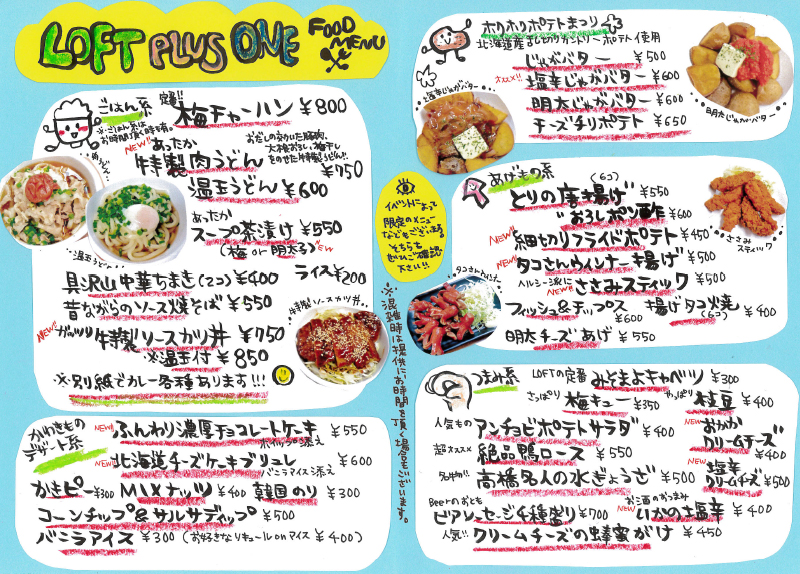 LOFT PLUS ONE
FOOD MENU
ごはん系
定番!! 梅チャーハン ¥800
NEW!! あったか
特製肉うどん ¥750
温玉うどん ¥600
あったか!
スープ茶漬け ¥550
(梅 or 明太子) NEW
温玉うどん
具沢山中華ちまき(2コ) ¥400
ライス ¥200
昔ながらのソース焼そば ¥550
NEW!! ガッツリ 特製ソースカツ丼 ¥750
※温玉付 ¥850
特製ソースカツ丼
※別紙でカレー各種あります!!!
かわきもの
デザート系
NEW! ふんわり濃厚チョコレートケーキ ¥550
ホイップ添え
NEW! 北海道チーズケーキブリュレ ¥600
バニラアイス添え
かきピー ¥300
MIXナッツ ¥400
韓国のり ¥300
コーンチップ&サルサディップ ¥500
バニラアイス ¥300 (お好きなリキュール on アイス ¥400)
イベントによって
限定のメニュー
などもございます。
そちらも
ぜひご確認
下さい!!
※混雑時は提供にお時間を頂く場合もございます。
ホクホクポテトまつり
じゃがバター ¥500
オススメ!! 塩辛じゃがバター ¥600
明太じゃがバター ¥600
チーズチリポテト ¥650
塩辛じゃがバター
明太じゃがバター
あげもの系
(6コ)
とりの唐揚げ ¥550
〃おろしポン酢 ¥600
NEW!! 細切りアンチョビポテト ¥450
タコさんウィンナー揚げ ¥500
ヘルシー派に NEW!! ささみスティック ¥500
フィッシュ&チップス ¥600
揚げタコ焼 (6コ) ¥400
明太チーズあげ ¥550
ささみスティック
タコさんウィンナー
つまみ系
LOFTの定番 みそまよキャベツ ¥300
さっぱり 梅キュー ¥350
やっぱり 枝豆 ¥400
人気もの アンチョビポテトサラダ ¥400
NEW おかかクリームチーズ ¥400
超オススメ 絶品鴨ロース ¥550
NEW 塩辛クリームチーズ ¥500
名物!! 高橋名人の水ぎょうざ ¥500
Beerのおとも ビアソーセージ4種盛り ¥700
お酒のおつまみ NEW いかの塩辛 ¥400
人気!! クリームチーズの蜂蜜がけ ¥450